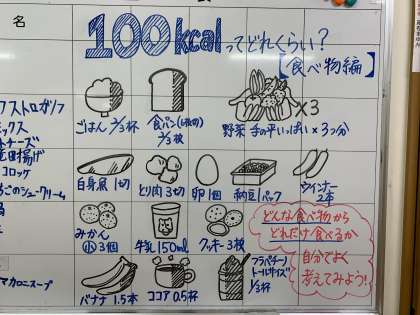 名
100kcalってどれくらい?
【食べ物編】
ごはん 2/3杯
食パン(6枚切)
2/3枚
野菜 手の平いっぱい×3つ分
×3
白身魚 1切
とり肉 3切
卵 1個
納豆 1パック
ウインナー
2本
みかん
小 3個
牛乳 150ml
クッキー 3枚
バナナ 1.5本
ココア 0.5杯
フラパチーノ
トールサイズ
1/3杯
どんな食べ物から
どれだけ食べるか
自分でよく
考えてみよう!
フストロガノフ
ミックス
竜田揚げ
コロッケ
きのこのシュークリーム
マカロニスープ